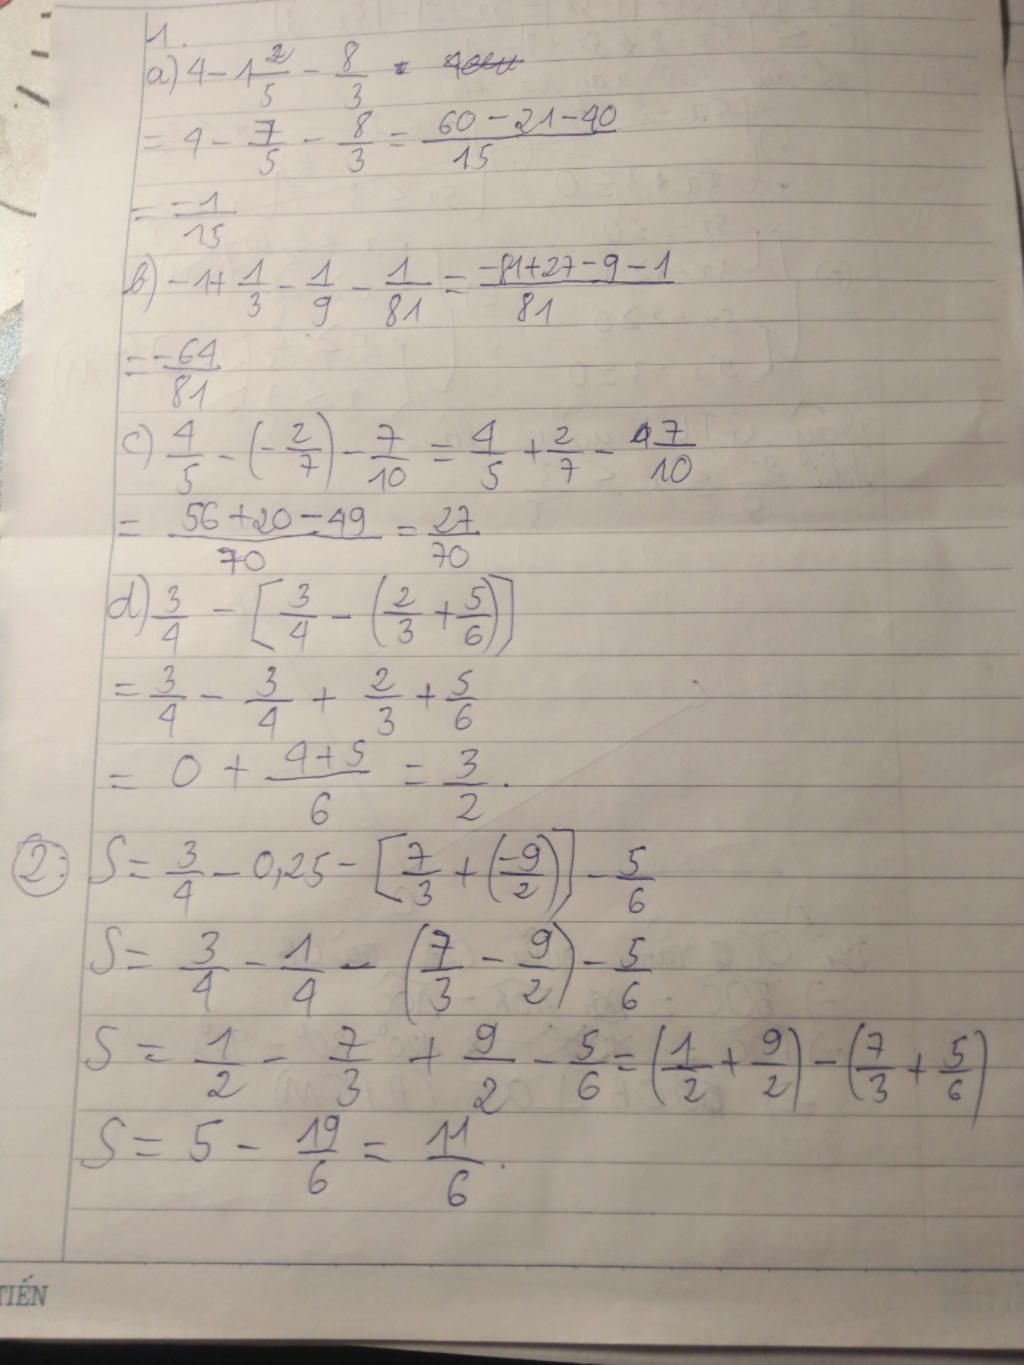 1.
a) 4 - 1 2/5 - 8/3 =
= 4 - 7/5 - 8/3 = (60 - 21 - 40)/15
= -1/15
b) -1 + 1/3 - 1/9 - 1/81 = (-81 + 27 - 9 - 1)/81
= -64/81
c) 4/5 - (-2/7) - 7/10 = 4/5 + 2/7 - 7/10
= (56 + 20 - 49)/70 = 27/70
d) 3/4 - [3/4 - (2/3 + 5/6)]
= 3/4 - 3/4 + 2/3 + 5/6
= 0 + (4 + 5)/6 = 3/2.
2: S = 3/4 - 0,25 - [7/3 + (-9/2)] - 5/6
S = 3/4 - 1/4 - (7/3 - 9/2) - 5/6
S = 1/2 - 7/3 + 9/2 - 5/6 = (1/2 + 9/2) - (7/3 + 5/6)
S = 5 - 19/6 = 11/6.
TIẾN